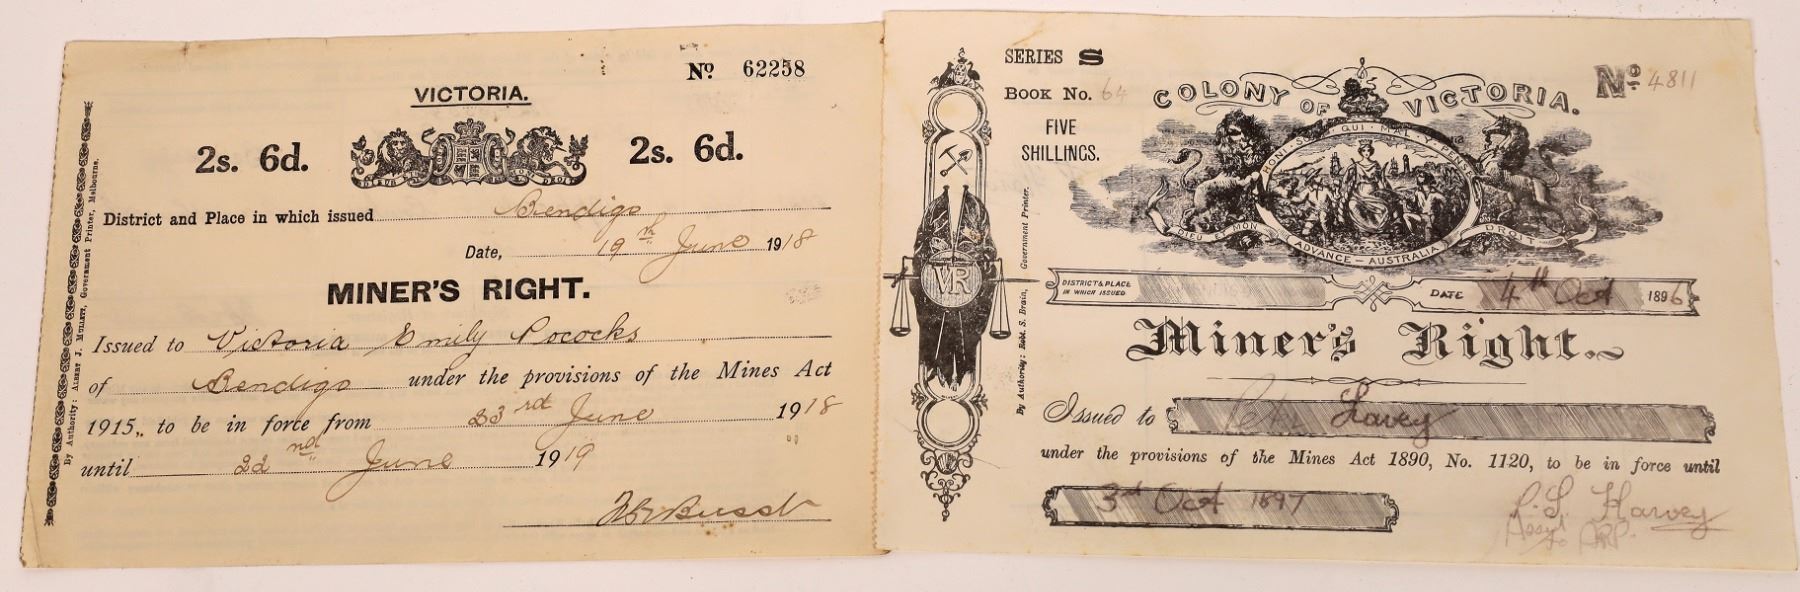 No 62258
VICTORIA.
2s. 6d.
2s. 6d.
DIEU ET MON DROIT
District and Place in which issued Bendigo
Date, 19th June 1918
MINER'S RIGHT.
Issued to Victoria Emily Pococks
of Bendigo under the provisions of the Mines Act
1915, to be in force from 23rd June 1918
until 22nd June 1919
Busst
By Authority: ALBERT J. MULLETT, Government Printer, Melbourne.
SERIES S
BOOK NO. 64
FIVE
SHILLINGS.
COLONY OF VICTORIA.
No. 4811
HONI · SOIT · QUI · MAL · Y · PENSE
DIEU ET MON DROIT
ADVANCE — AUSTRALIA
VR
DISTRICT & PLACE
IN WHICH ISSUED
DATE 4th Oct 1896
Miner's Right.
Issued to Harvey
under the provisions of the Mines Act 1890, No. 1120, to be in force until
3rd Oct 1897
Harvey
By Authority: Robt. S. Brain, Government Printer.